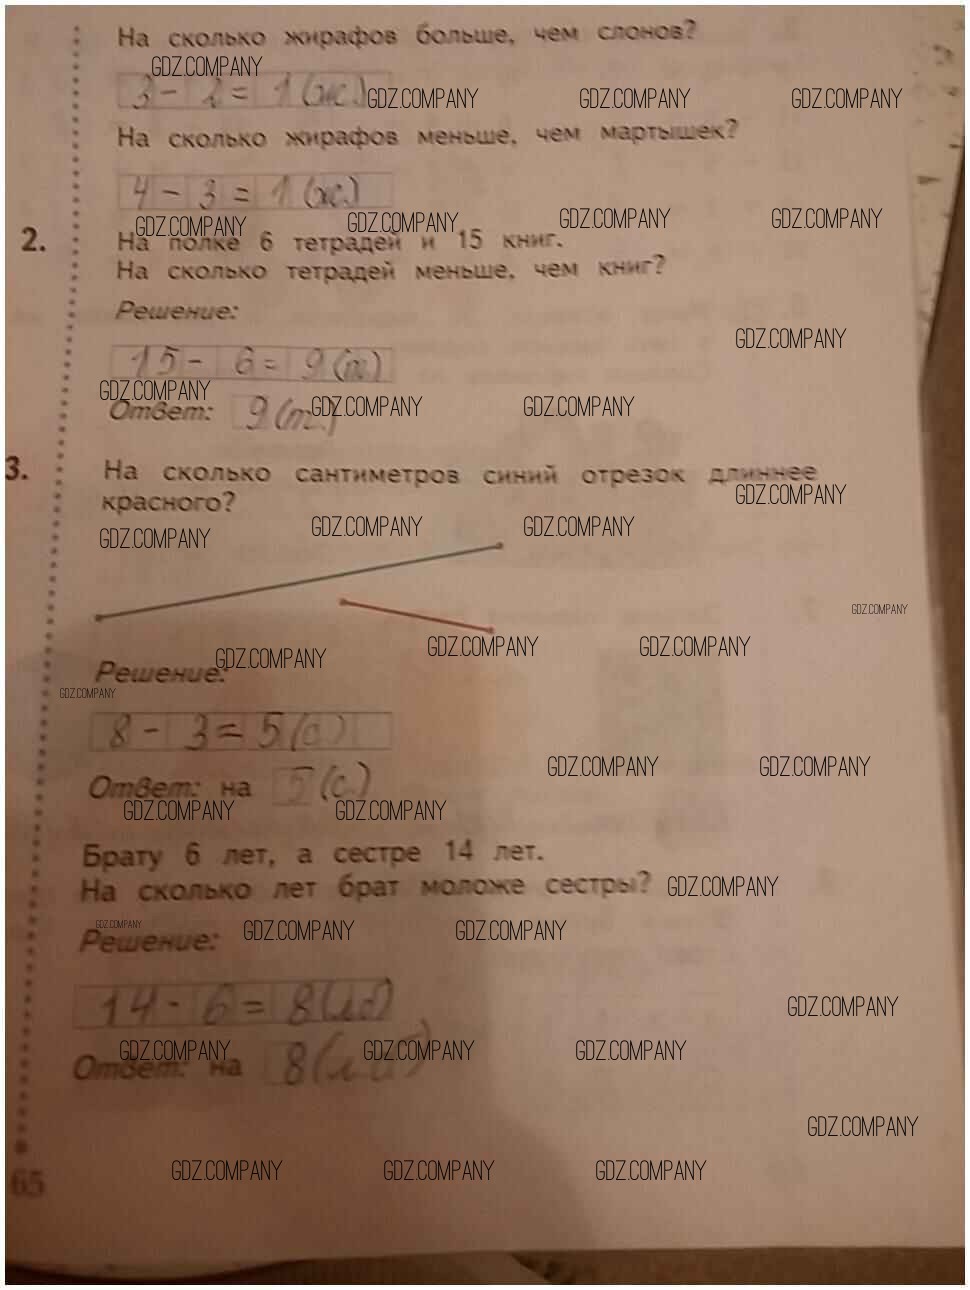 На сколько жирафов больше, чем слонов?
GDZ.COMPANY
3 - 2 = 1 (ж.)
GDZ.COMPANY GDZ.COMPANY GDZ.COMPANY
На сколько жирафов меньше, чем мартышек?
4 - 3 = 1 (ж.)
GDZ.COMPANY GDZ.COMPANY GDZ.COMPANY GDZ.COMPANY
2. На полке 6 тетрадей и 15 книг.
На сколько тетрадей меньше, чем книг?
Решение:
GDZ.COMPANY
15 - 6 = 9 (т.)
GDZ.COMPANY GDZ.COMPANY GDZ.COMPANY
Ответ: 9 (т.)
3. На сколько сантиметров синий отрезок длиннее
GDZ.COMPANY
красного?
GDZ.COMPANY GDZ.COMPANY GDZ.COMPANY
GDZ.COMPANY
GDZ.COMPANY GDZ.COMPANY GDZ.COMPANY
Решение:
GDZ.COMPANY
8 - 3 = 5 (с)
GDZ.COMPANY GDZ.COMPANY
Ответ: на 5 (с.)
GDZ.COMPANY GDZ.COMPANY
Брату 6 лет, а сестре 14 лет.
На сколько лет брат моложе сестры?
GDZ.COMPANY
GDZ.COMPANY GDZ.COMPANY GDZ.COMPANY
Решение:
14 - 6 = 8
GDZ.COMPANY
GDZ.COMPANY GDZ.COMPANY GDZ.COMPANY
Ответ: на 8
GDZ.COMPANY
GDZ.COMPANY GDZ.COMPANY GDZ.COMPANY
65